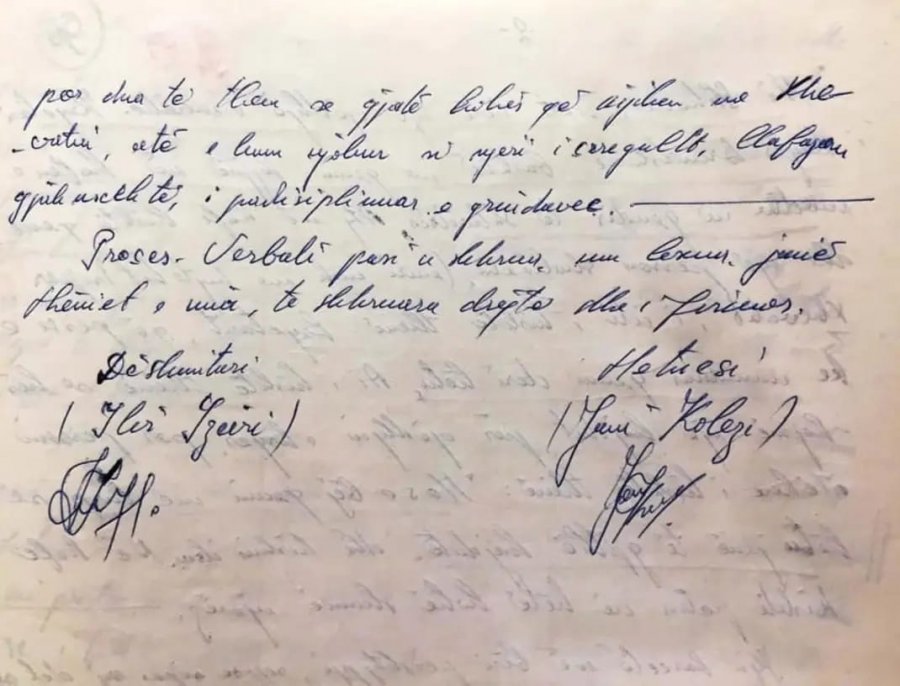 por dua të them se gjatë kohës që njihem me Xhe-
-vatin, atë e kam njohur si njeri i çrregullt, llafazan
gjuhusthtë, i padisiplinuar e grindavec.
Proses-Verbali pasi u shkrua, um lexua, janë
thëniet e mia, të shkruara drejtë dhe i firmos.
Dëshmitari Hetuesi
(Ilir Izeiri) (Jani Kolezi)